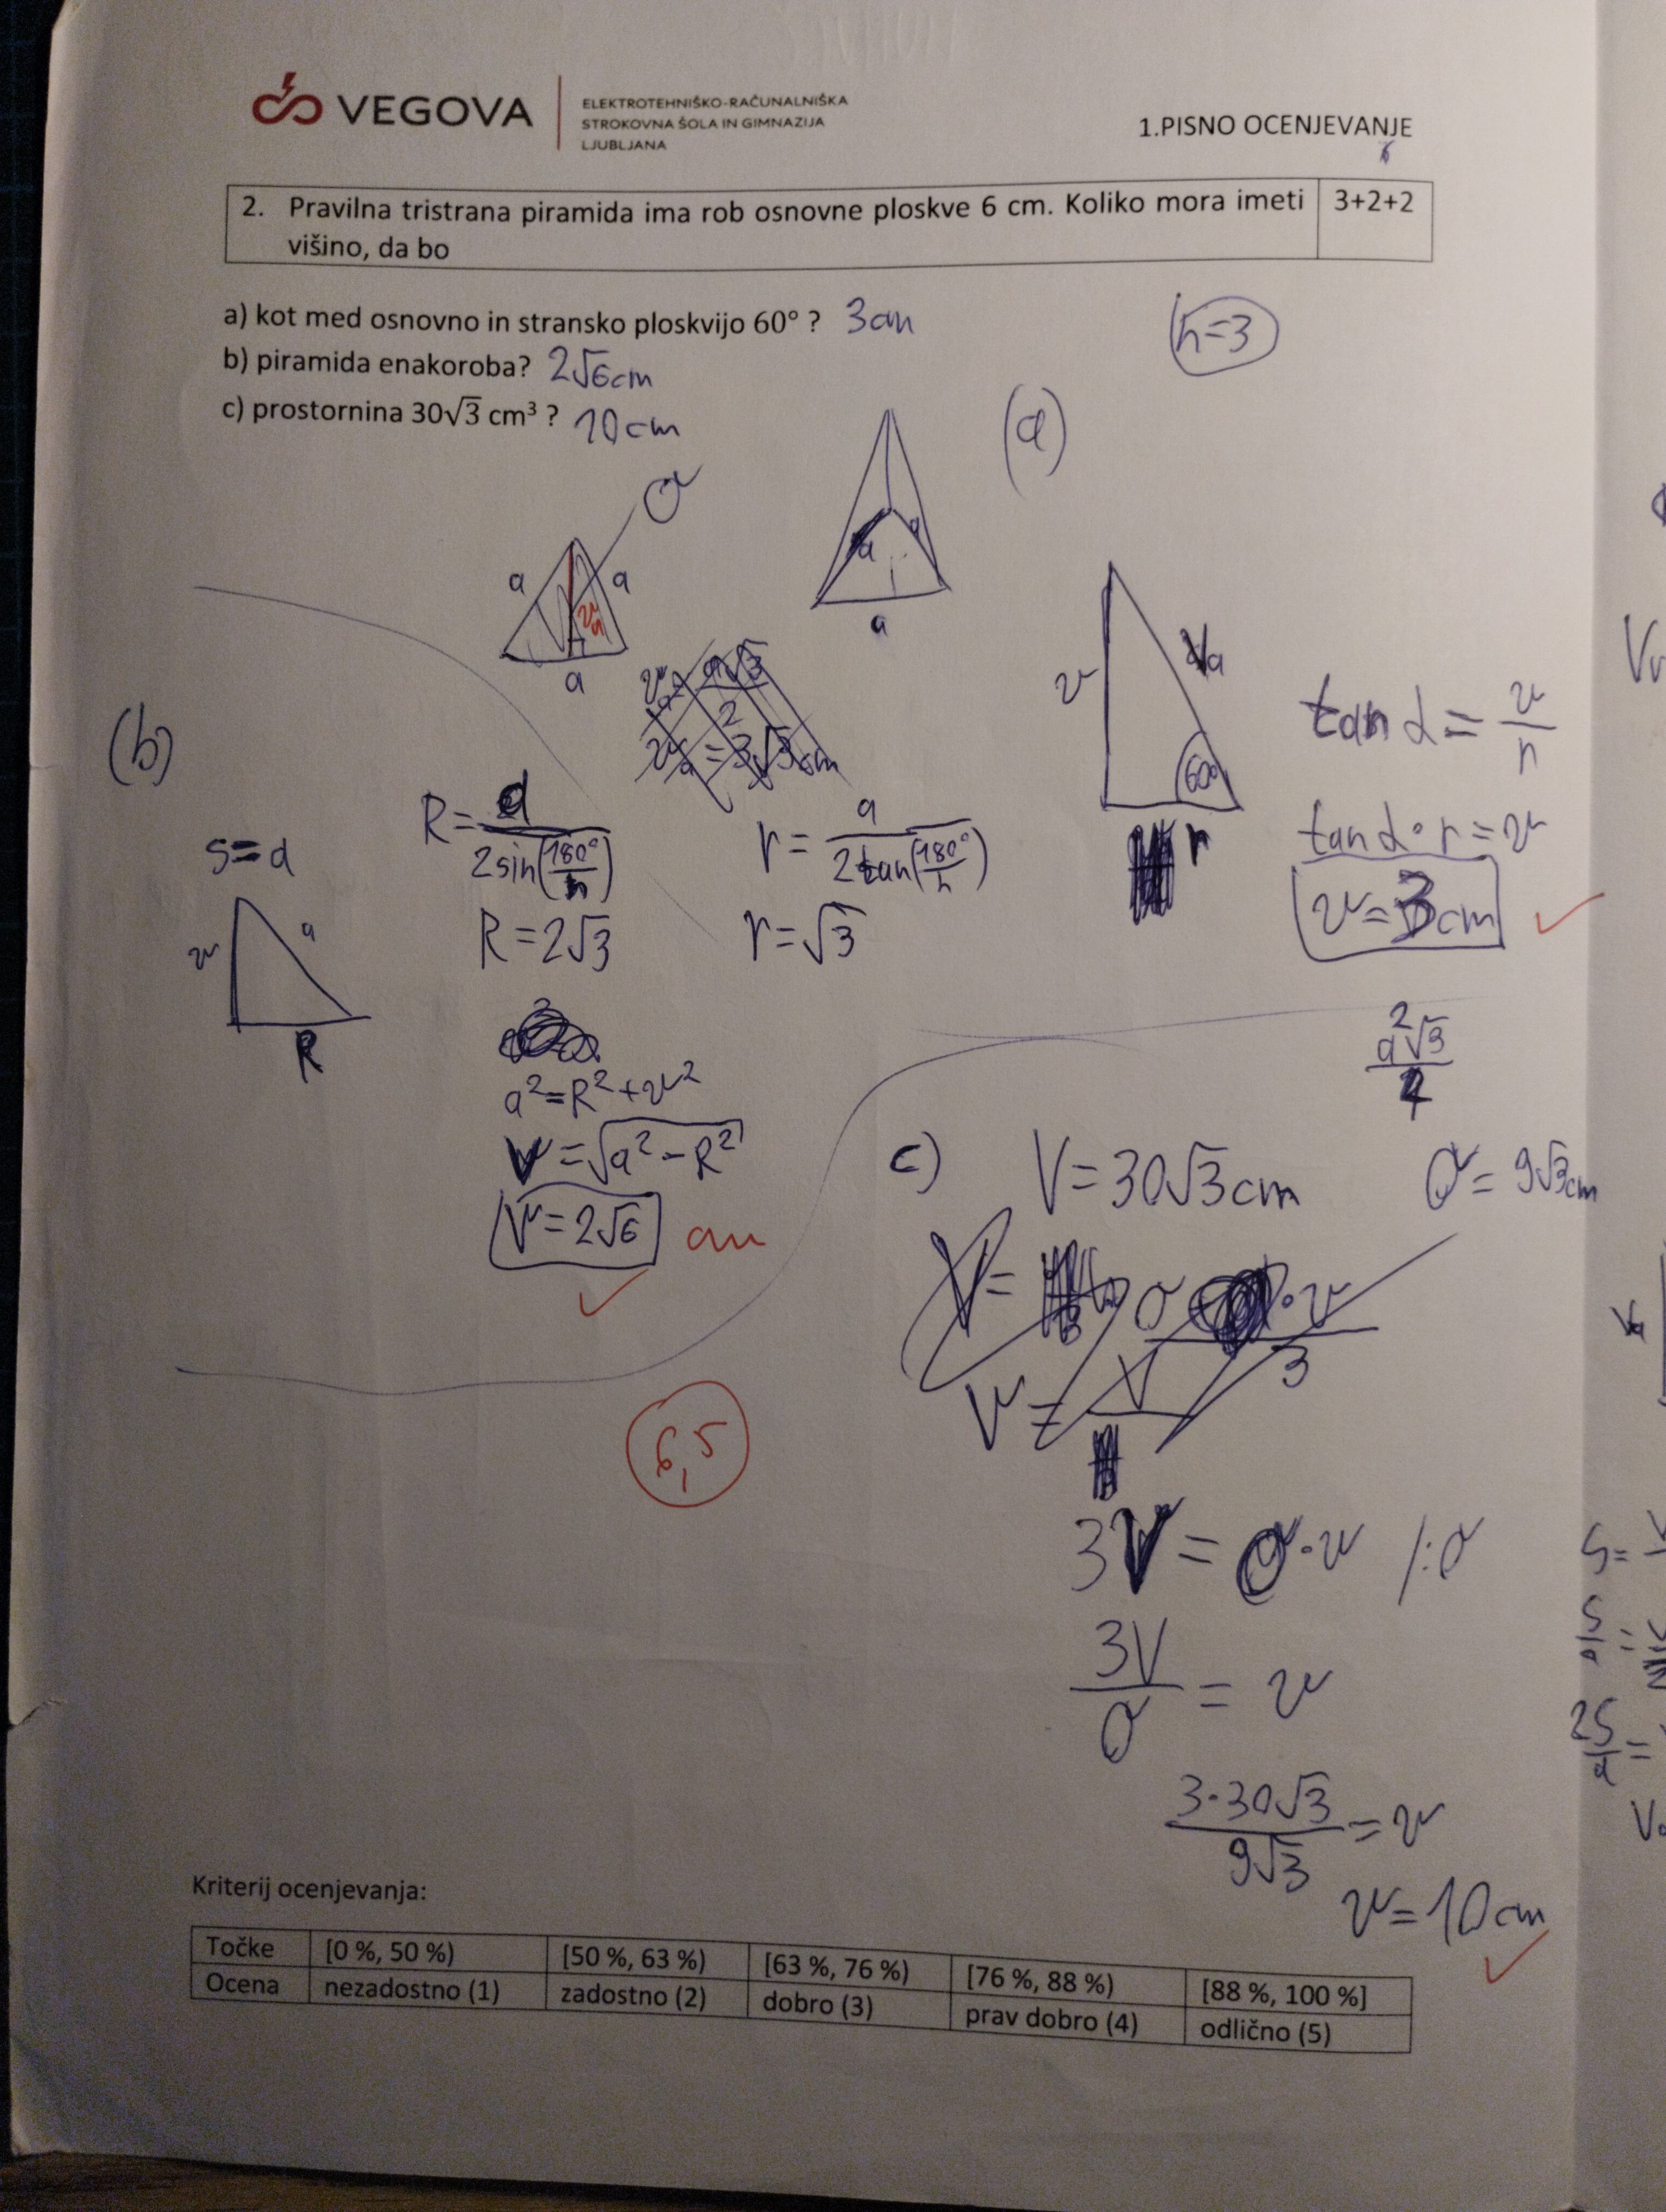 VEGOVA
ELEKTROTEHNIŠKO-RAČUNALNIŠKA
STROKOVNA ŠOLA IN GIMNAZIJA
LJUBLJANA
1.PISNO OCENJEVANJE
2. Pravilna tristrana piramida ima rob osnovne ploskve 6 cm. Koliko mora imeti višino, da bo
3+2+2
a) kot med osnovno in stransko ploskvijo 60° ? 3cm
n=3
b) piramida enakoroba? 2√6cm
c) prostornina 30√3 cm³ ? 10cm
(a)
O
a
a
a
a
a
a
v
va
60°
r
tan α = v/r
tan α · r = v
v = 3cm
(b)
s=a
v
a
R
R = a/(2sin(180°/n))
R = 2√3
r = a/(2tan(180°/n))
r = √3
a² = R² + v²
v = √(a² - R²)
v = 2√6 cm
a²√3/4
c)
V = 30√3cm
O = 9√3cm
V = O · v / 3
6,5
3V = O · v /:O
3V/O = v
3·30√3/9√3 = v
v = 10cm
Kriterij ocenjevanja:
Točke [0 %, 50 %) [50 %, 63 %) [63 %, 76 %) [76 %, 88 %) [88 %, 100 %]
Ocena nezadostno (1) zadostno (2) dobro (3) prav dobro (4) odlično (5)